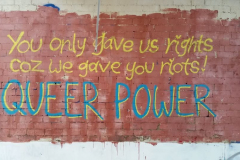 You only gave us rights
coz we gave you riots!
QUEER POWER